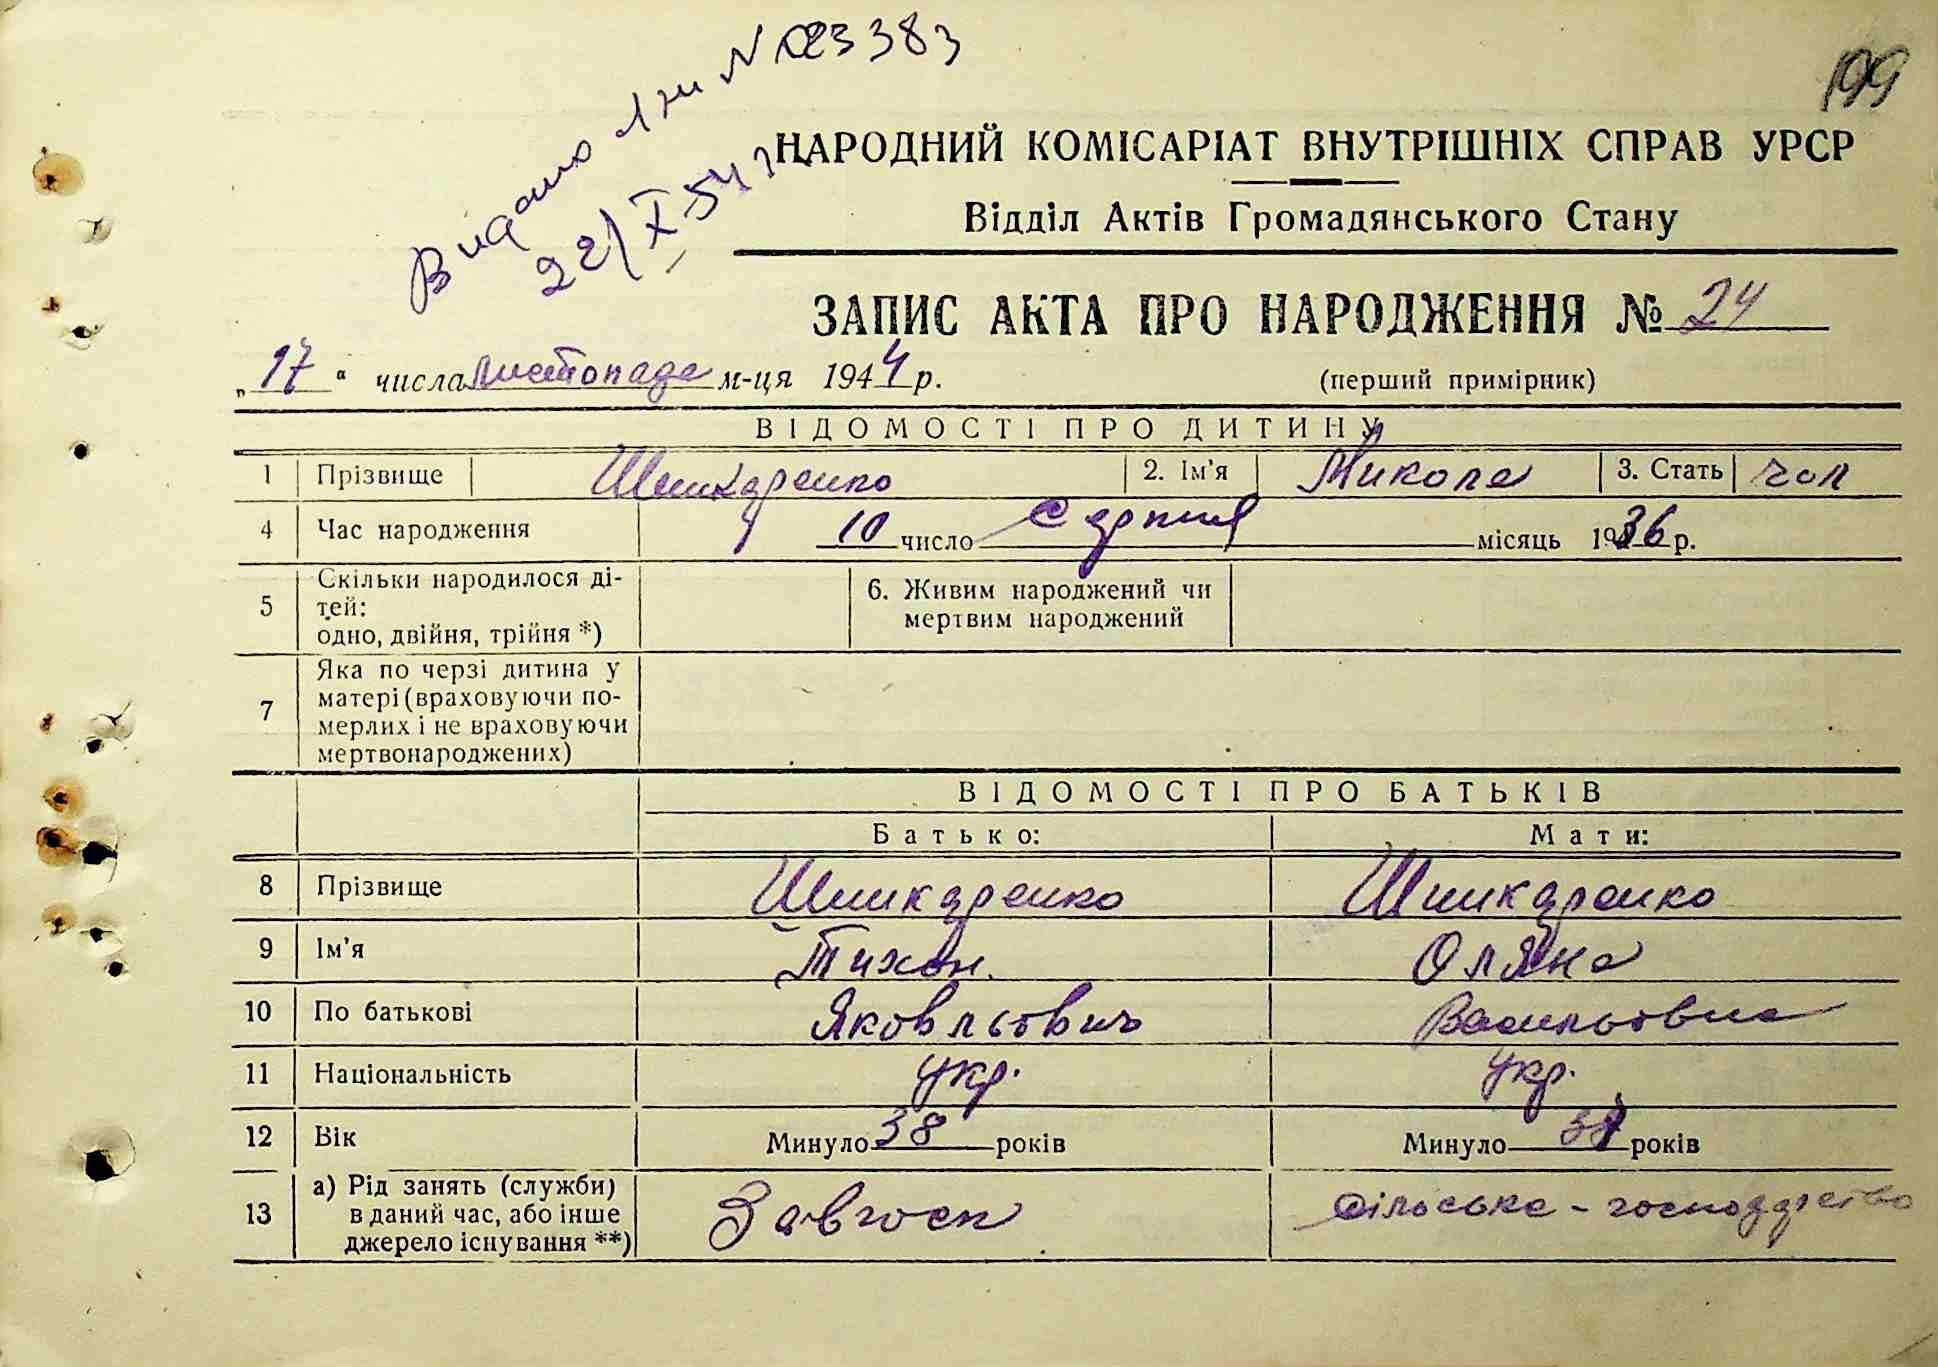 199
Видано ЛЖ № 023383
22/X-54 г
НАРОДНИЙ КОМІСАРІАТ ВНУТРІШНІХ СПРАВ УРСР
Відділ Актів Громадянського Стану
ЗАПИС АКТА ПРО НАРОДЖЕННЯ № 24
„17“ числа листопада м-ця 1944 р. (перший примірник)
ВІДОМОСТІ ПРО ДИТИНУ
1 Прізвище Шинкаренко 2. Ім'я Микола 3. Стать чол
4 Час народження 10 число Серпня місяць 1936 р.
5 Скільки народилося ді-
тей:
одно, двійня, трійня *)
6. Живим народжений чи
мертвим народжений
7 Яка по черзі дитина у
матері (враховуючи по-
мерлих і не враховуючи
мертвонароджених)
ВІДОМОСТІ ПРО БАТЬКІВ
Батько: Мати:
8 Прізвище Шинкаренко Шинкаренко
9 Ім'я Тихон Оляна
10 По батькові Яковльович Васильовна
11 Національність укр. укр.
12 Вік Минуло 38 років Минуло років
13 а) Рід занять (служби)
в даний час, або інше
джерело існування **)
Завгосп Сільське-господарство